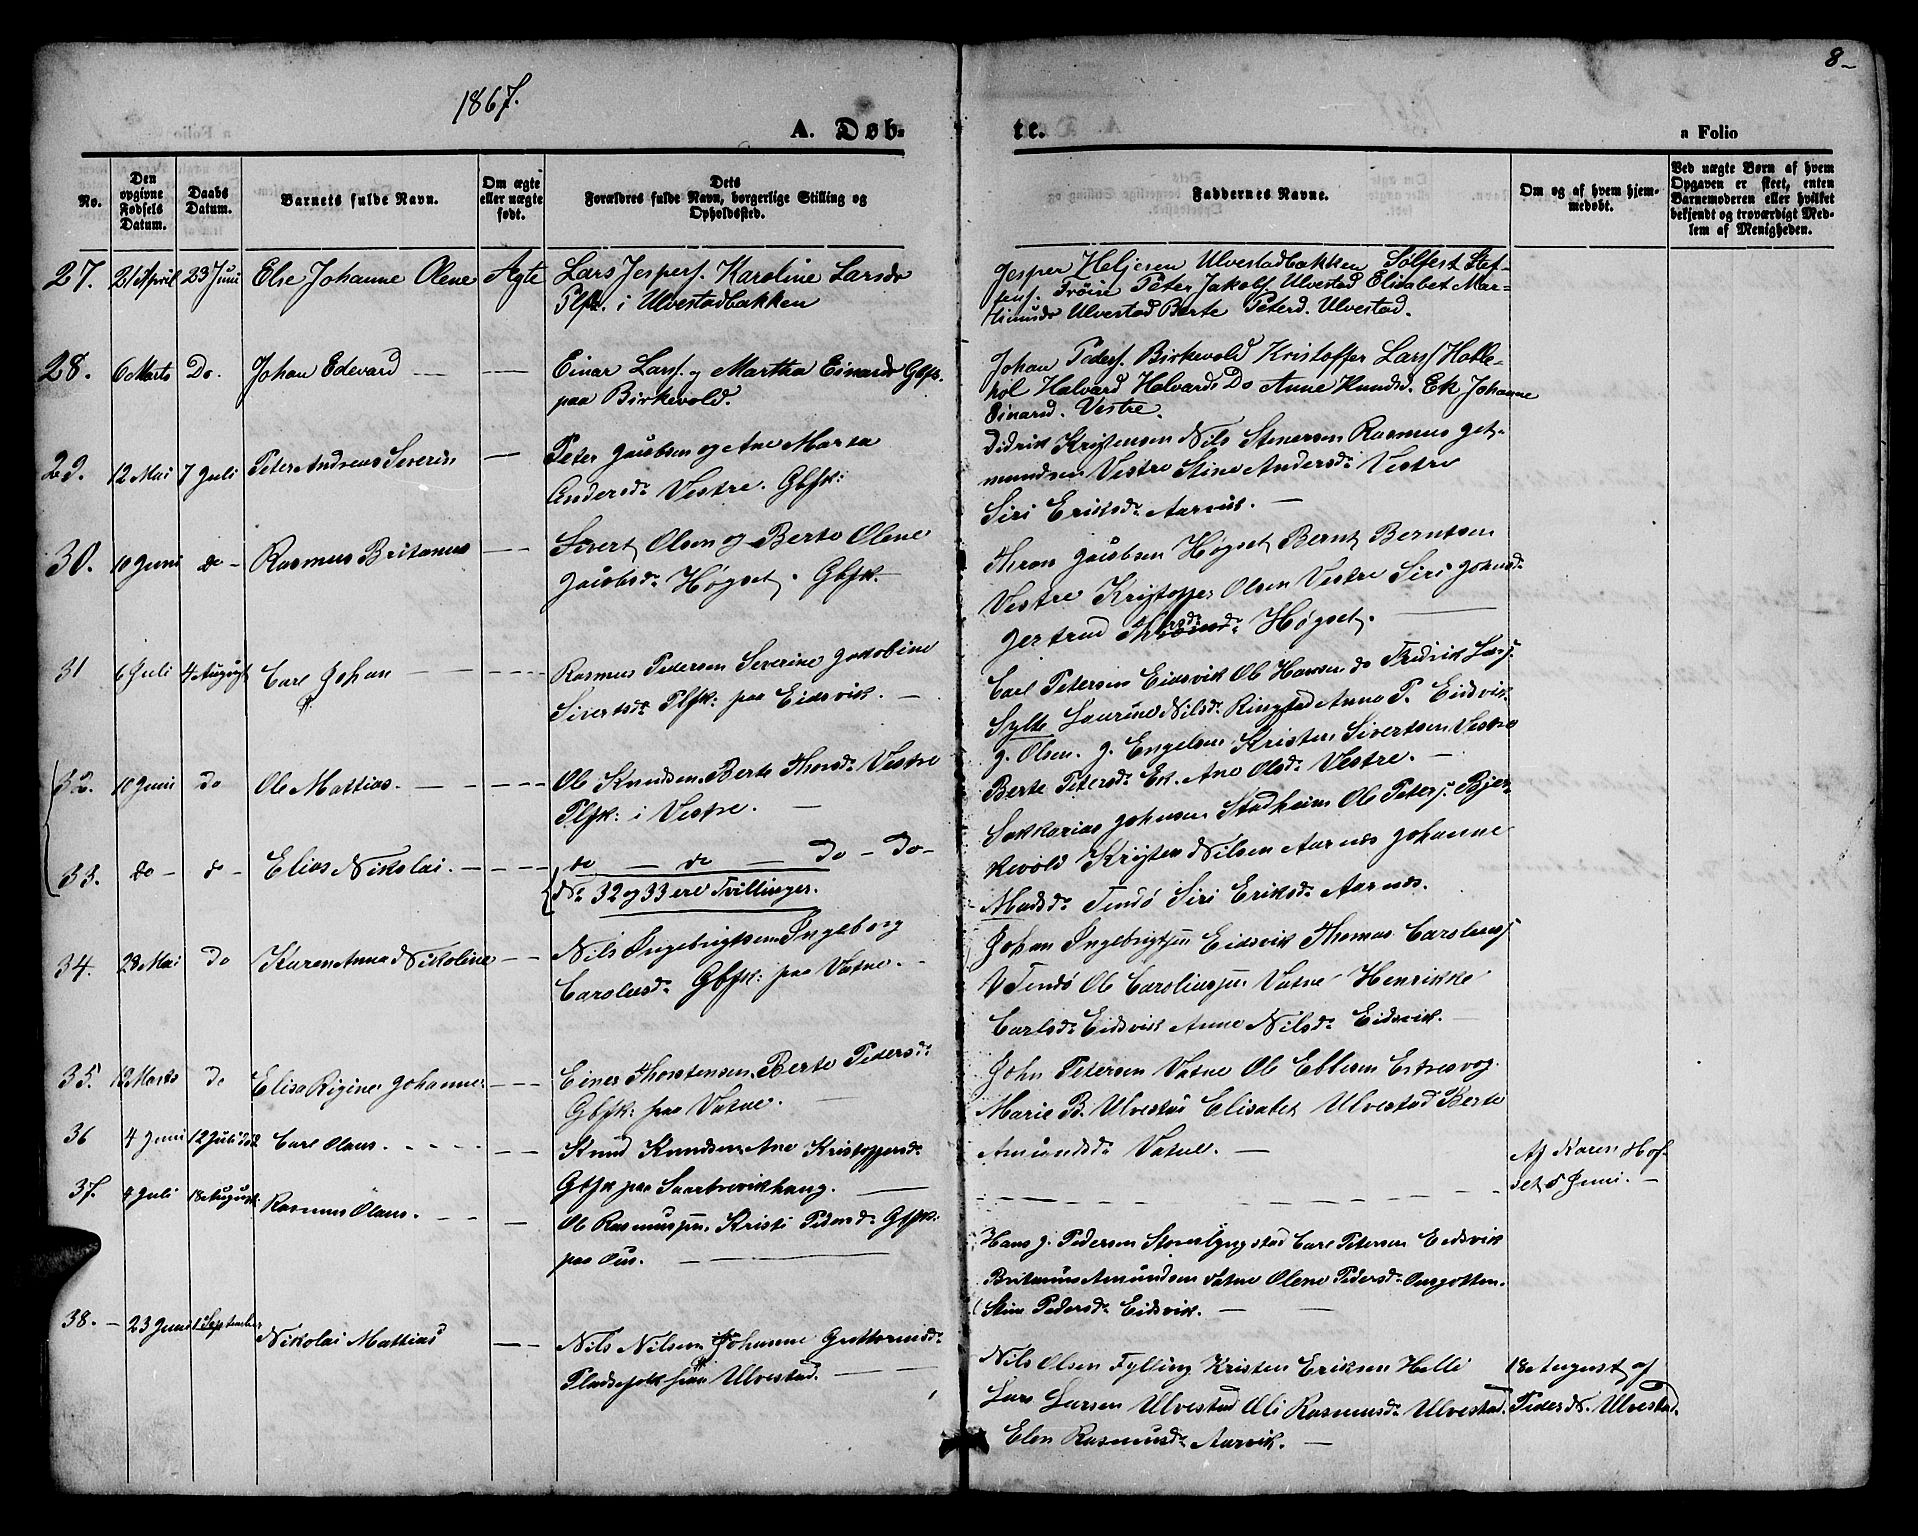 8
1867.
A. Døb-
te.
a Folio
No.
Den opgivne Fødsels Datum.
Daabs Datum.
Barnets fulde Navn.
Om ægte eller uægte født.
Dets Forældres fulde Navn, borgerlige Stilling og Opholdssted.
Faddernes Navne.
Om og af hvem hjemmedøbt.
Ved uægte Børn af hvem Opgaven er skeet, enten Barnemoderen eller hvilket bekjendt og troværdigt Medlem af Menigheden.
27. 21 April 23 Juni Else Johanne Olene Ægte Lars Jespers. Karoline Larsdr
Plfk. i Ulvestadbakken
Jesper Heljesen Ulvestadbakken Sølfest Stef-
fens. Trøien Peter Jakobs Ulvestad Elisabet Mar-
Ulvestad Berte Peterd. Ulvestad.
28. 6 Marts Do. Johan Edevard
Einar Lars. og Martha Einarsd Gbfk.
paa Birkevold.
Johan Peders. Birkevold Kristoffer Lars. Holle-
hol Halvard Halvards Do Anne Knudsd. Ek Johanne
Einarsd. Vestre.
29. 12 Mai 7 Juli Peter Andreas Severin
Peter Jacobsen og Ane Marta
Andersdr Vestre. Gbfk:
Didrik Kristensen Nils Steinersen Rasmus Get-
mundsen Vestre Stine Andersdr Vestre
Siri Eriksdr Aarnes.
30. 10 Juni do Rasmus Britanus
Sivert Olsen og Berte Olene
Jacobsdr Høgset. Gbfk.
Thron Jacobsen Høgset Bernt Berntsen
Vestre Kristoffer Olsen Vestre Siri Johnsdr
Gertrud Høgset.
31 6 Juli 4 August Carl Johan
Rasmus Pedersen Severine Jakobine
Sivertsdr Plfk: paa Eidsvik.
Carl Petersen Eidsvik Ole Hansen do Fredrik Lars.
Sylte Laurine Nilsdr Ringstad Anna P. Eidsvik
32. 10 Juni Do Ole Mattias.
Ole Knudsen Berte Thorsdr Vestre
Plfk: i Vestre.
J. Olsen. J. Engelsen Kristen Sivertsen Vestre
Berte Petersdr Ek. Ane Olsdr Vestre.
33. do do Elias Nikolai.
do do Do Do
No 32 og 33 ere Tvillinger.
Sakkarias Johnsen Stadheim Ole Peters. Bjer-
kevold Kristen Nilsen Aarnes Johanne
Madsdr Tendø Siri Eriksdr Aarnes.
34. 23 Mai Do Karen Anna Nikoline
Nils Ingebrigtsen Ingeborg
Carolusdr Gbfk: paa Vatne.
Johan Ingebrigtsen Eidsvik Thomas Carolus.
Tendø Ole Caroliussen Vatne Henrikke
Carlsdr Eidsvik Anne Nilsdr Eidsvik.
35. 12 Marts do Elisa Rigine Johanne
Einer Thorstensen Berte Pedersdr
Gbfk: paa Vatne.
John Petersen Vatne Ole Ebbesen Estresvog.
Marie B. Ulvestad Elisabet Ulvestad Berte
Amundsdr Vatne.
36 4 Juni 12 Juli Carl Olaus.
Knud Knudsen Ane Kristoffersdr
Gbfk paa Saarbrevikhaug.
Af Karen Hof-
set 5 Juni.
37. 4 Juli 18 August Rasmus Olaus.
Ole Rasmussen. Kristi Pedersdr Gbfk.
paa Øus.
Hans J. Pedersen Storelyngstad Carl Petersen Eidsvik
Britanus Amundsen Vatne Olene Pedersdr
Stine Pedersdr Eidsvik.
38. 23 Juni 1 September Nikolai Mattias
Nils Nilsen Johanne Guttormsdr
Pladsefolk paa Ulvestad.
Nils Olsen Fylling Kristen Eriksen Helle
Lars Larsen Ulvestad Oli Rasmusdr Ulvestad.
Elen Rasmusdr Aarvik.
18 August af
Peder N. Ulvestad.